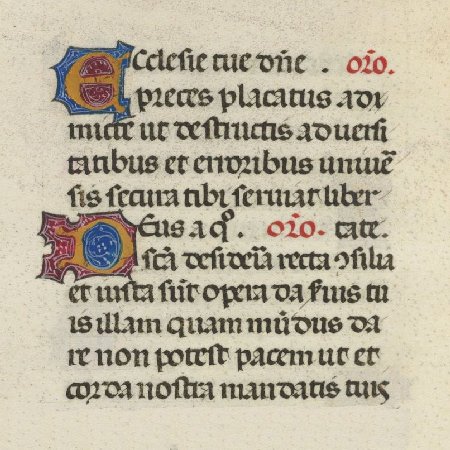 Ecclesie tue dn̄e . or̄o.
preces placatus adi
micte ut destructis aduersi
tatibus et erroribus uniuē
sis secura tibi seruiat liber
Deus a qͦ. or̄o. tate.
scā desideīa recta ꝯsilia
et iusta sūt opera da fuis tu
is illam quam mūdus da
re non potest pacem ut et
corda nostra mandatis tuis